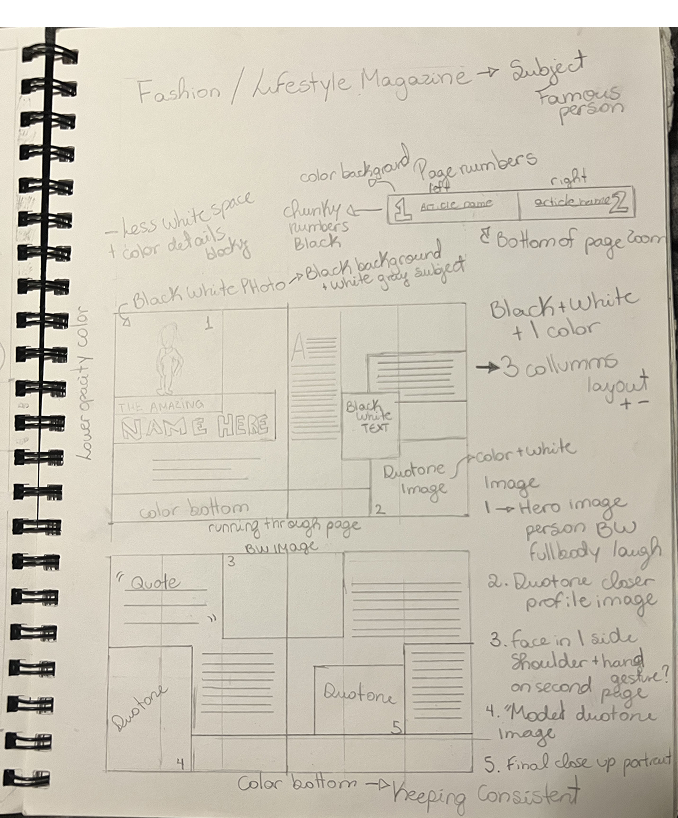 Fashion / Lifestyle Magazine → Subject
Famous
person
color background
Page numbers
left
right
1 article name
article name 2
chunky
numbers
Black
Bottom of page zoom
- Less white space
+ color details
blocky
Black White Photo → Black background
+ white gray subject
Lower opacity color
1
THE AMAZING
NAME HERE
A
Black
White
TEXT
Duotone
Image
2
color bottom
running through page
Black + White
+ 1 color
→ 3 collumms
layout
+ -
color + white
Image
1 → Hero image
person BW
fullbody laugh
2. Duotone closer
profile image
3. Face in 1 side
shoulder + hand
gesture?
on second page
4. "Model" duotone
image
5. Final close up portrait
BW IMAGE
3
" Quote
"
Duotone
4
Duotone
5
Color bottom → Keeping Consistent